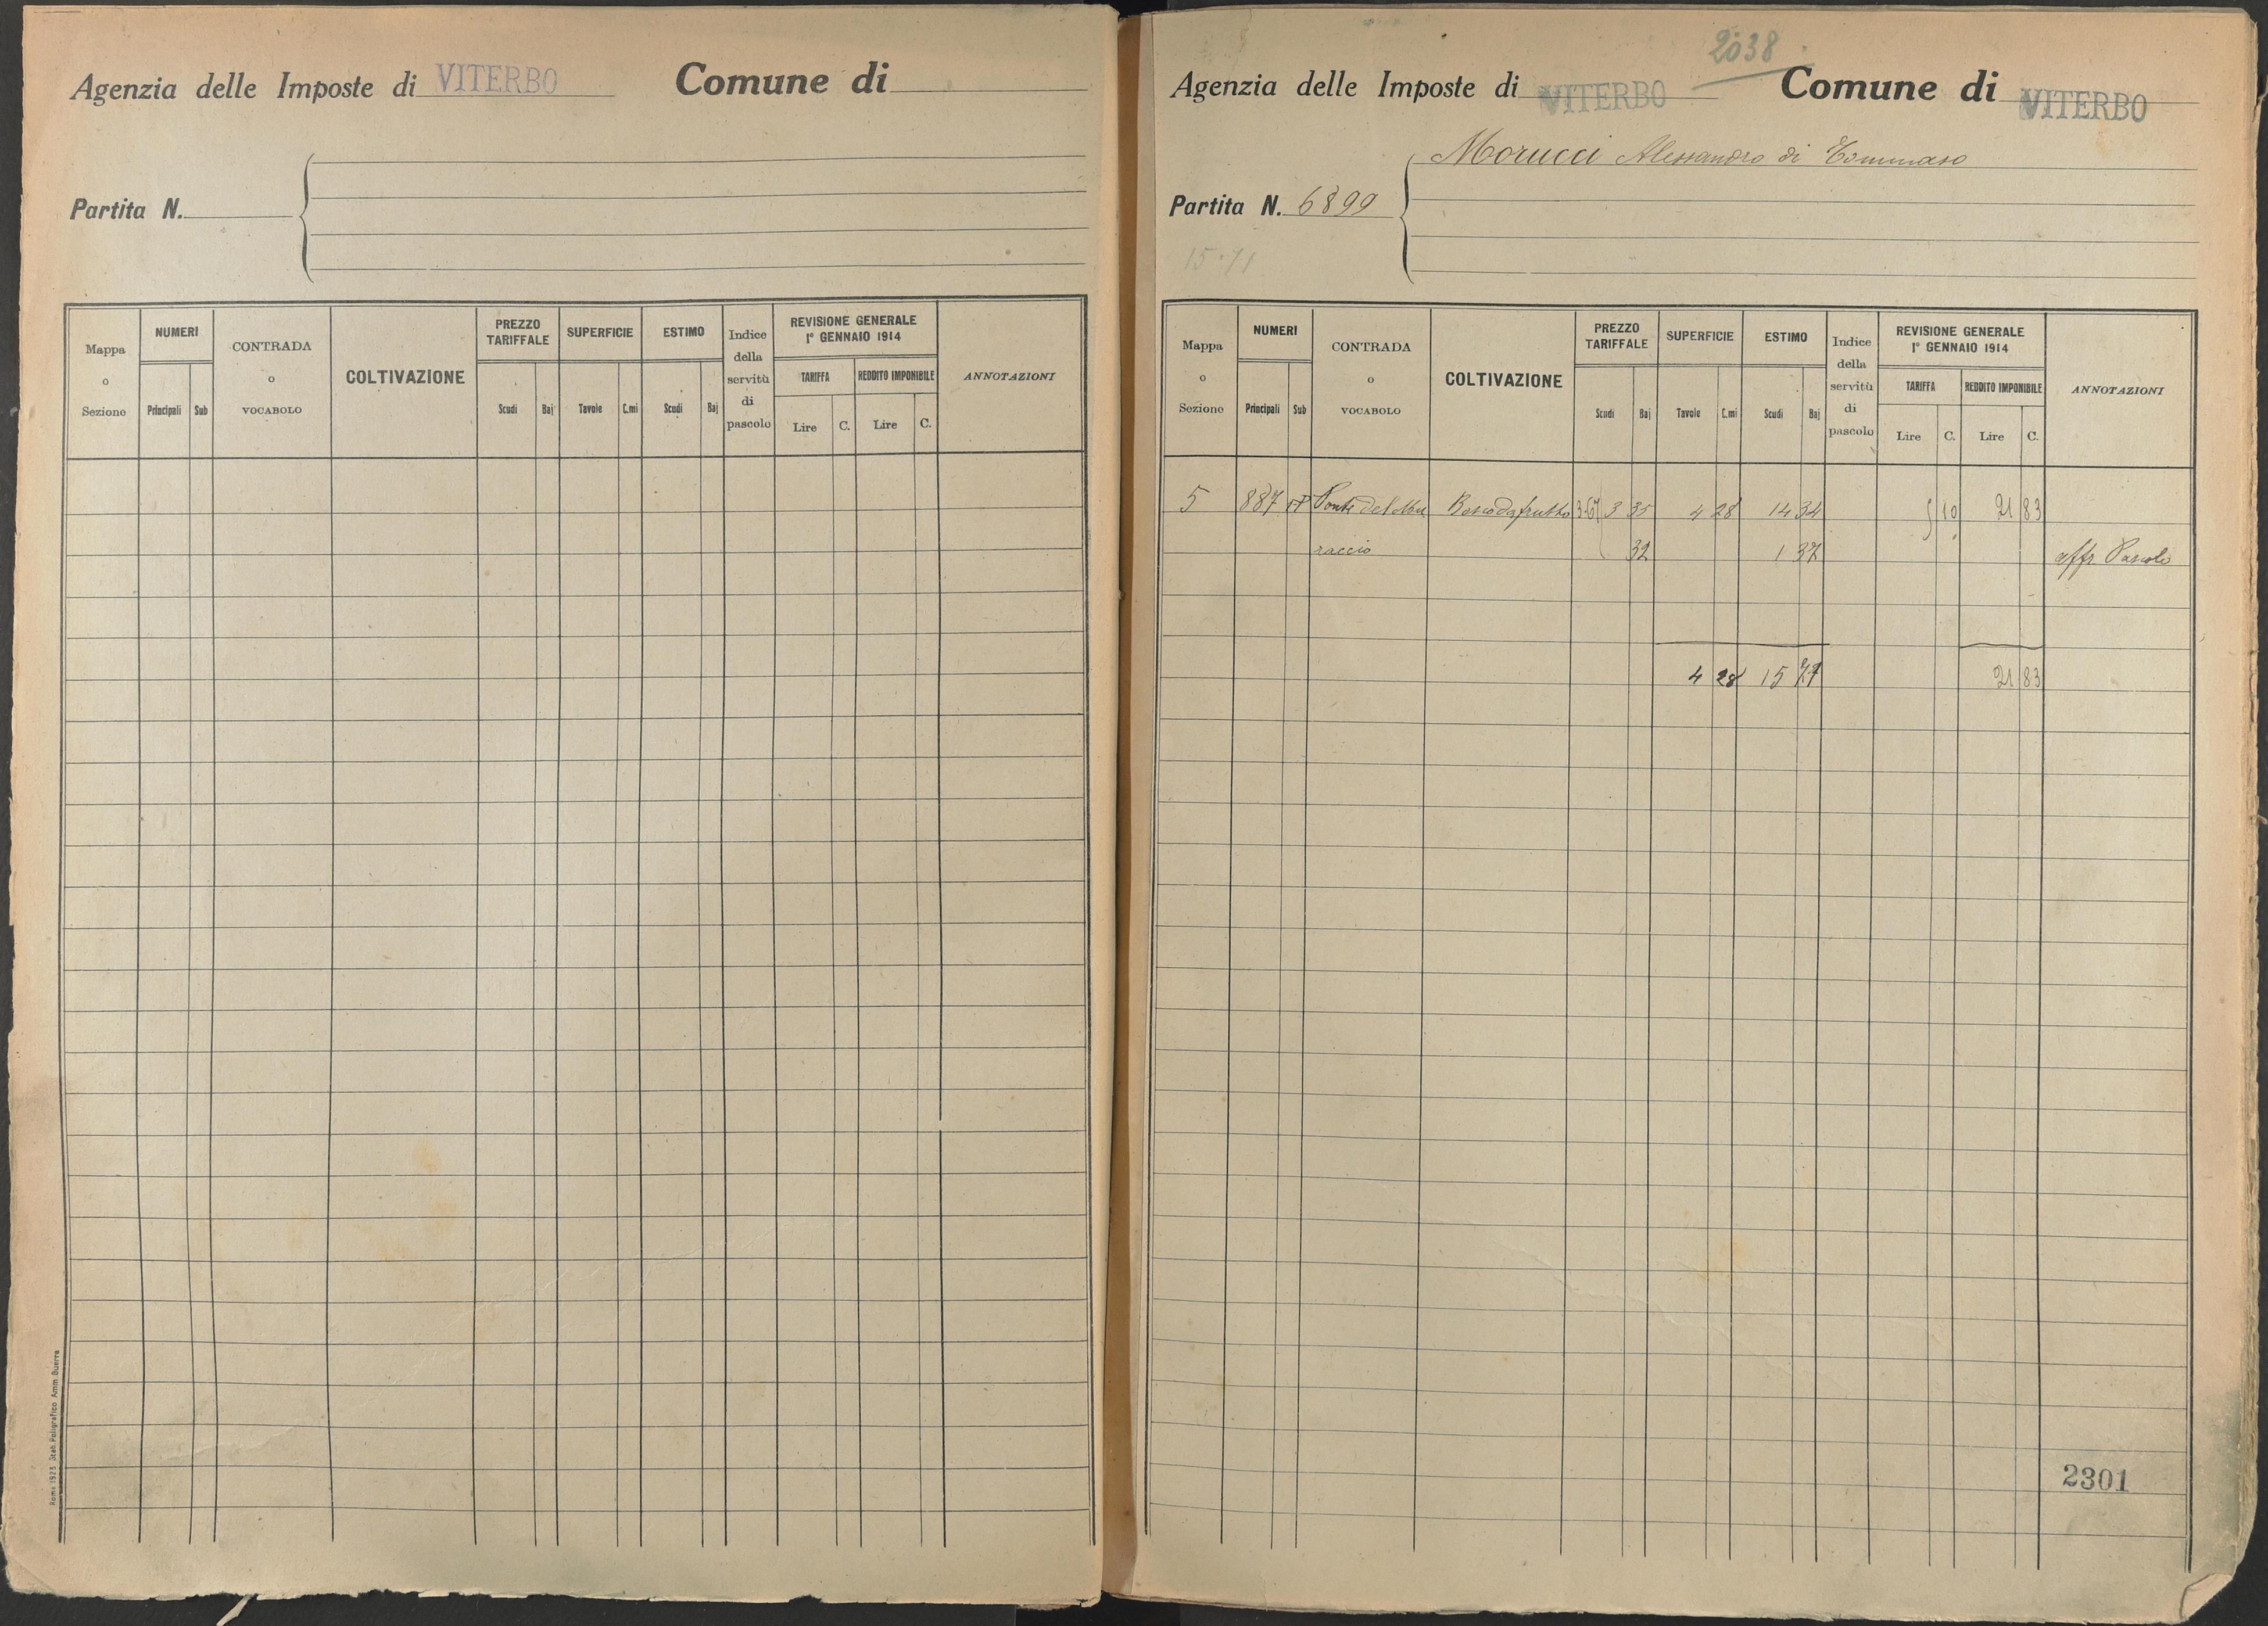 Agenzia delle Imposte di VITERBO Comune di
Partita N.
Mappa o Sezione
NUMERI
Principali Sub
CONTRADA o VOCABOLO
COLTIVAZIONE
PREZZO TARIFFALE
Scudi Baj
SUPERFICIE
Tavole C.mi
ESTIMO
Scudi Baj
Indice della servitù di pascolo
REVISIONE GENERALE
1º GENNAIO 1914
TARIFFA REDDITO IMPONIBILE
Lire C. Lire C.
ANNOTAZIONI
Roma 1925 Stab. Poligrafico Amm. Guerra
2038
Agenzia delle Imposte di VITERBO Comune di VITERBO
Morucci Alessandro di Tommaso
Partita N. 6899
15.71
Mappa o Sezione
NUMERI
Principali Sub
CONTRADA o VOCABOLO
COLTIVAZIONE
PREZZO TARIFFALE
Scudi Baj
SUPERFICIE
Tavole C.mi
ESTIMO
Scudi Baj
Indice della servitù di pascolo
REVISIONE GENERALE
1º GENNAIO 1914
TARIFFA REDDITO IMPONIBILE
Lire C. Lire C.
ANNOTAZIONI
5 887 Ponte del Mu Bosco da frutto 3.67 3 35 4 28 14 34 5 10 21 83
raccio 32 1 37 affr. Pascolo
4 28 15 71 21 83
2301